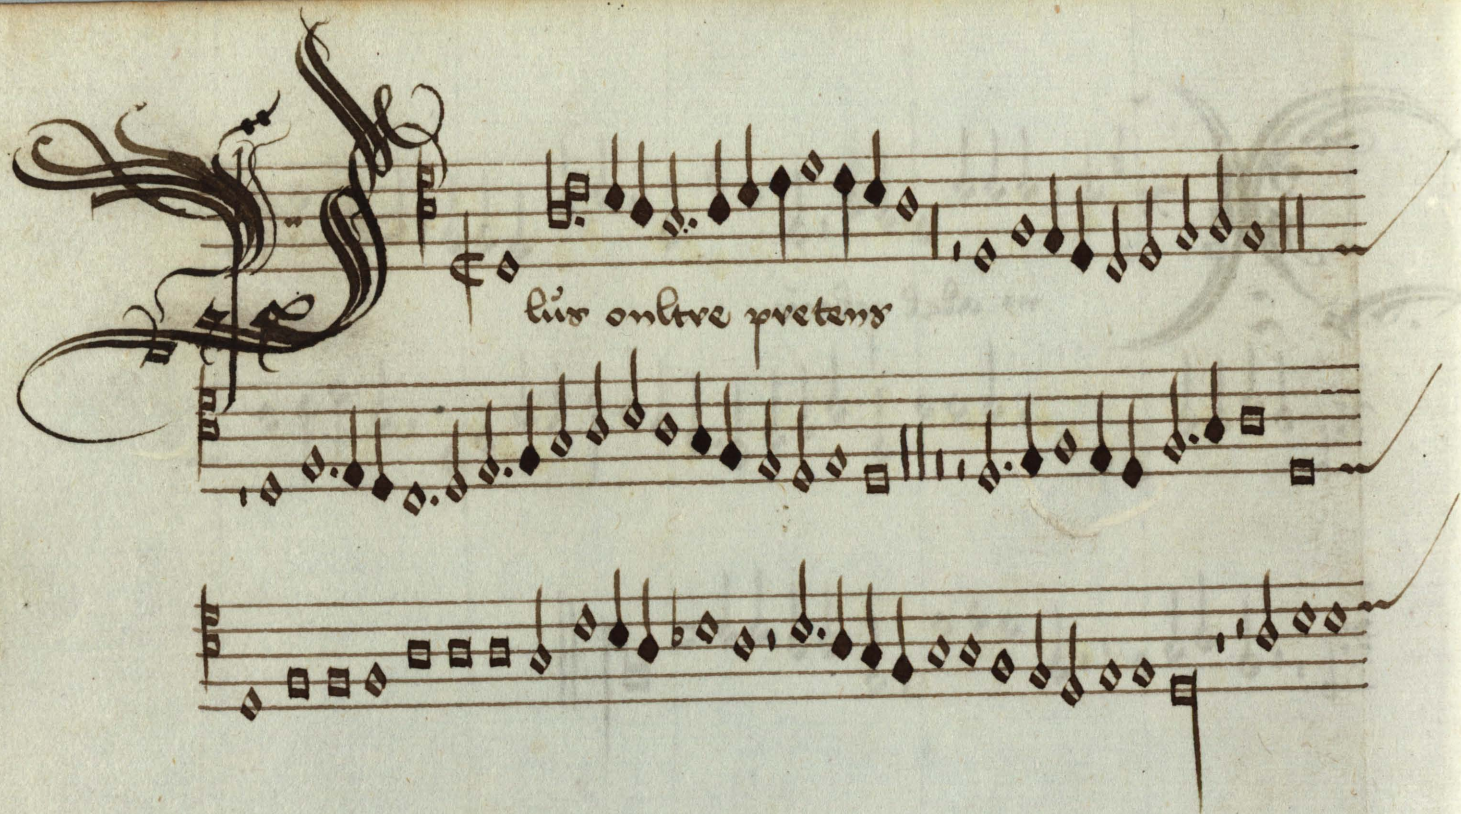 Plus oultre pretens